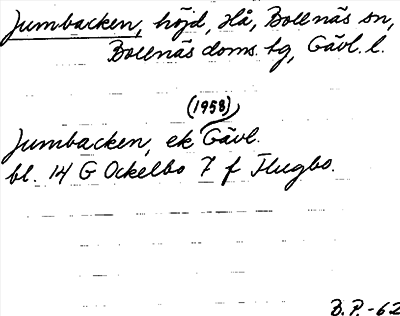 Jumbacken, höjd, Hå, Bollnäs sn,
Bollnäs doms. tg, Gävl. l.
(1958)
Jumbacken, ek Gävl.
bl. 14 G Ockelbo 7 f Flugbo.
B.P.-62